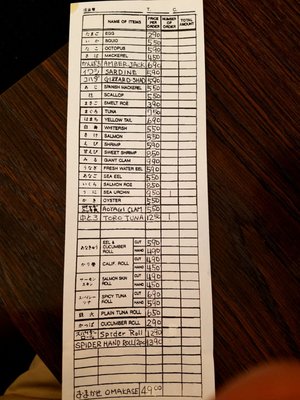 NAME OF ITEMS PRICE PER ORDER NUMBER OF ORDER TOTAL AMOUNT
たまご EGG 290
いか SQUID 550
たこ OCTOPUS 590
さば MACKEREL 450
かんぱち AMBER JACK 690
イワシ SARDINE 590
コハダ GIZZARD SHAD
あじ SPANISH MACKEREL 550
SCALLOP 550
まさご SMELT ROE 390
まぐろ TUNA
はまち YELLOW TAIL 690
WHITEFISH 550
SALMON 550
えび SHRIMP 590
SWEET SHRIMP 950
みる GIANT CLAM 990
うなぎ FRESH WATER EEL 590
あなご SEA EEL 550
いくら SALMON ROE 850
うに SEA URCHIN 1
かき OYSTER 550
AOYAGI CLAM 550
中とろ TORO TUNA 1
あなきゅう EEL & CUCUMBER ROLL CUT 590
HAND 490
CALIF. ROLL CUT 490
HAND 450
サーモンスキン SALMON SKIN ROLL CUT 490
HAND 450
SPICY TUNA ROLL CUT 690
HAND 590
鉄火 PLAIN TUNA ROLL 650
かっぱ CUCUMBER ROLL 290
Spider Roll 1290
SPIDER HAND ROLL 2pc 1390
おまかせ OMAKASE 4900